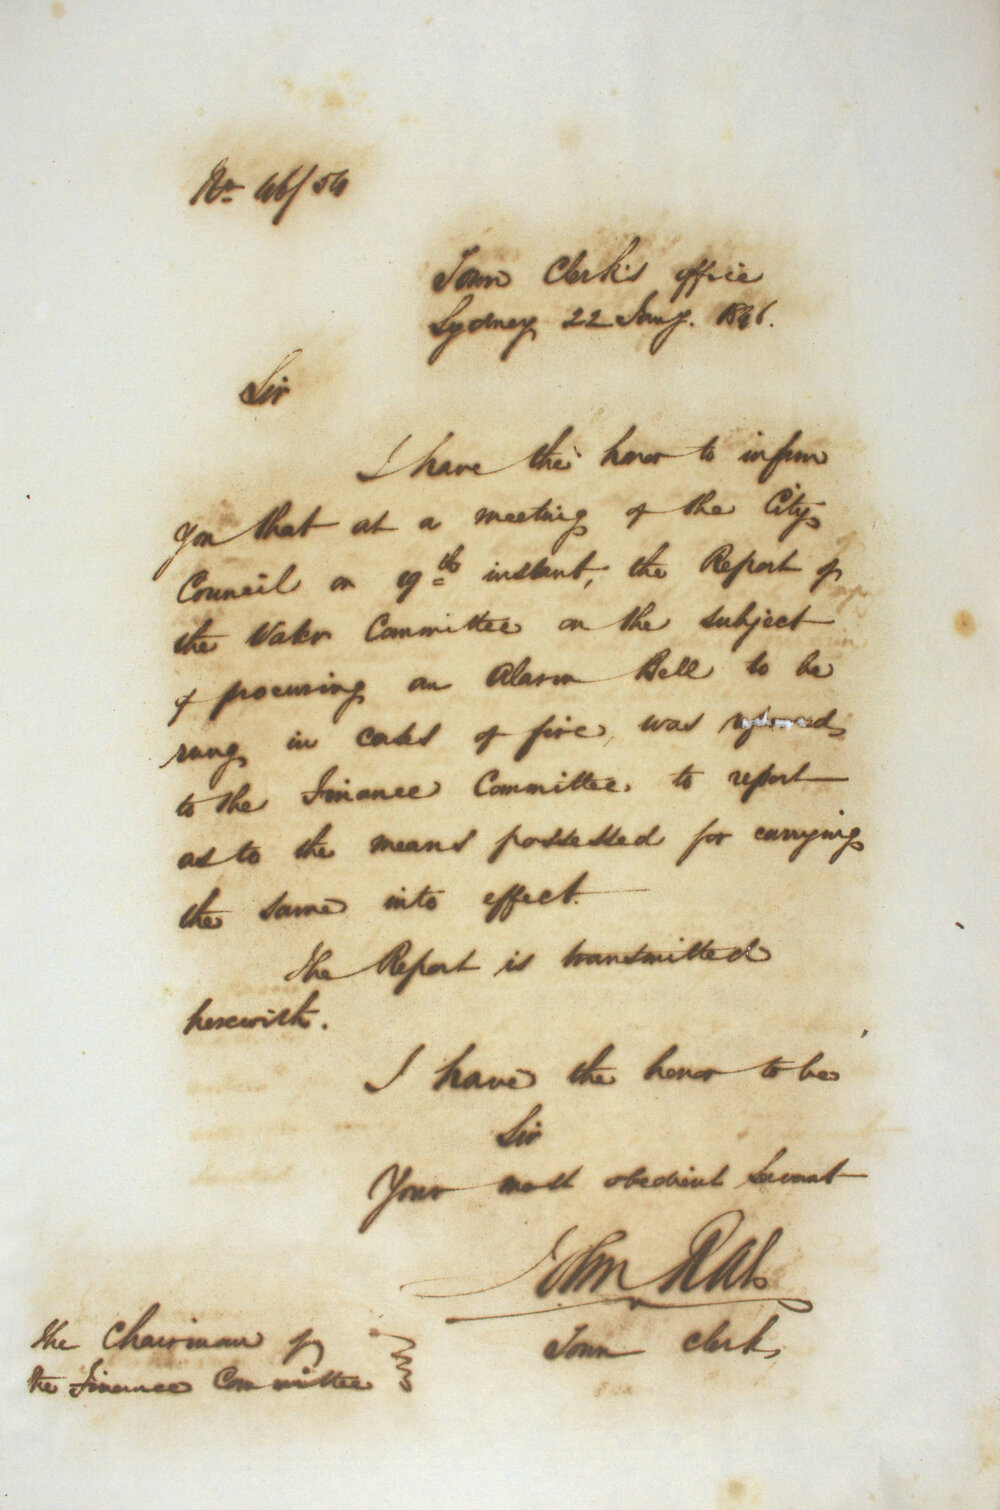 No 46/54
Town Clerk's office
Sydney 22 Jany. 1846.
Sir
I have the honor to inform
you that at a meeting of the City
Council on 19th instant, the Report of
the Water Committee on the subject
of procuring an Alarm Bell to be
rung in cases of fire, was referred
to the Finance Committee to report
as to the means possessed for carrying
the same into effect.
The Report is transmitted
herewith.
I have the honor to be
Sir
Your most obedient Servant
John Rae
Town Clerk
The Chairman of
the Finance Committee